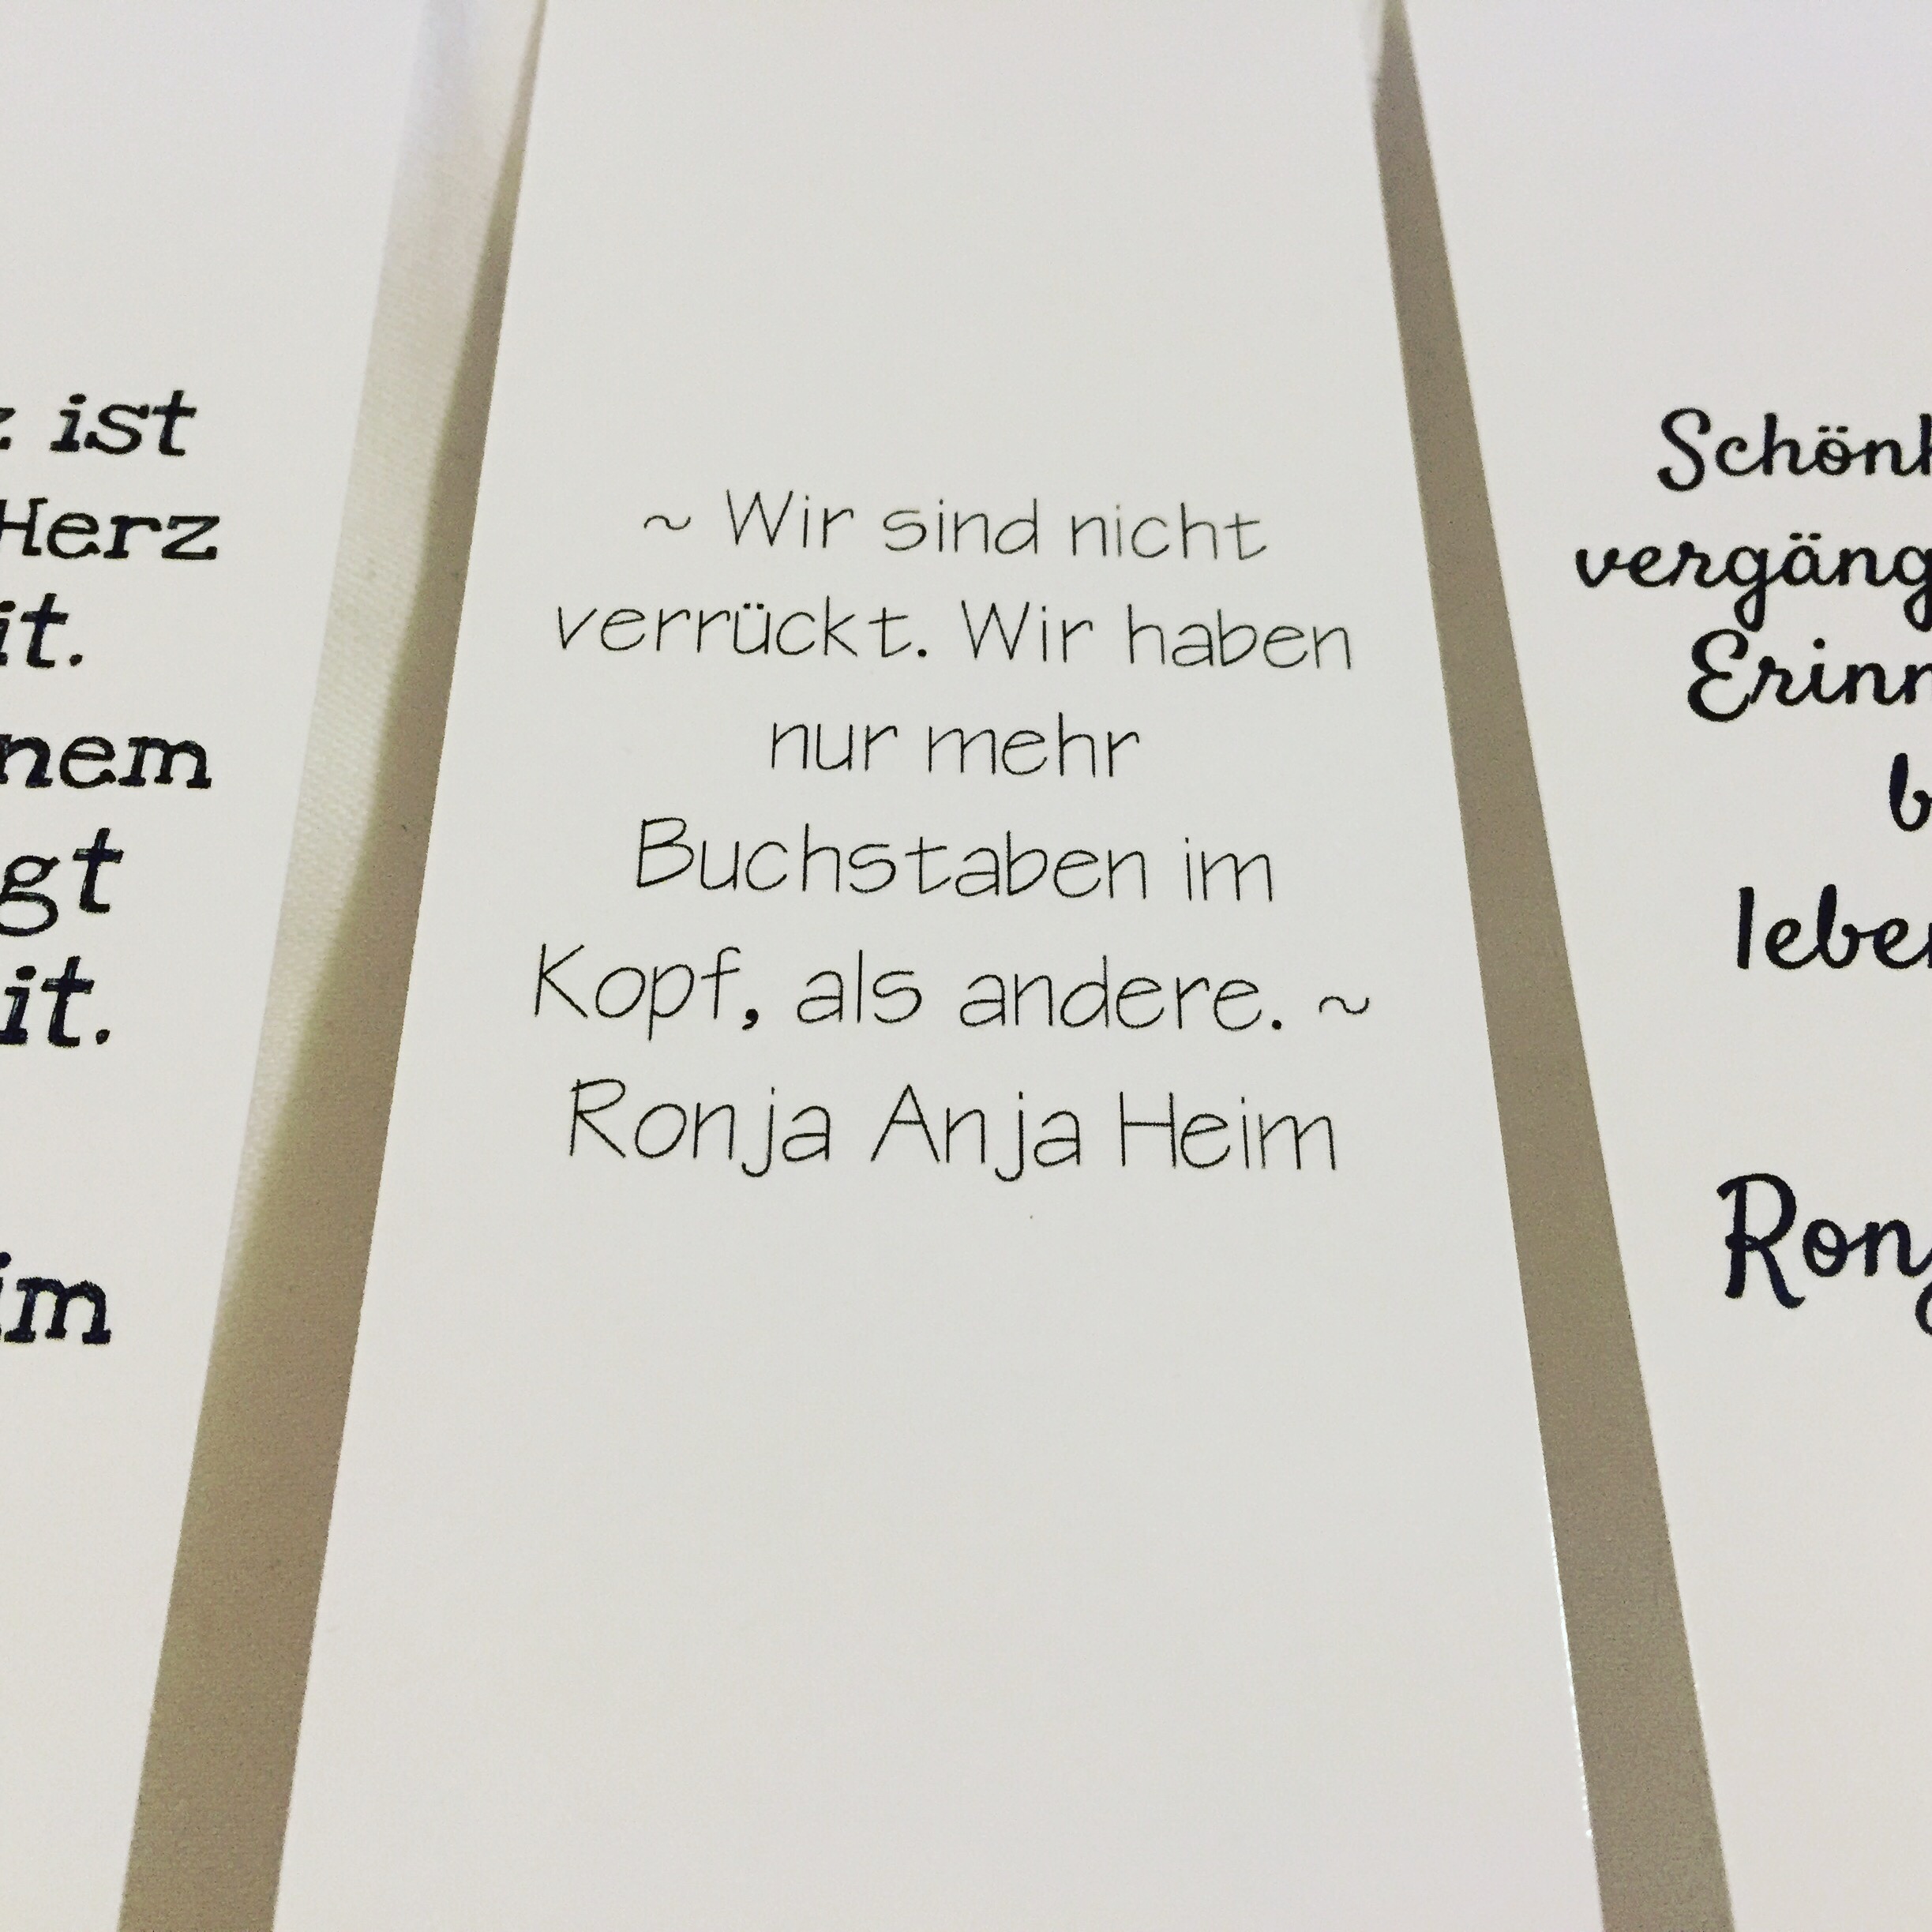 ist
Herz
it.
nem
gt
it.
im
~ Wir sind nicht
verrückt. Wir haben
nur mehr
Buchstaben im
Kopf, als andere. ~
Ronja Anja Heim